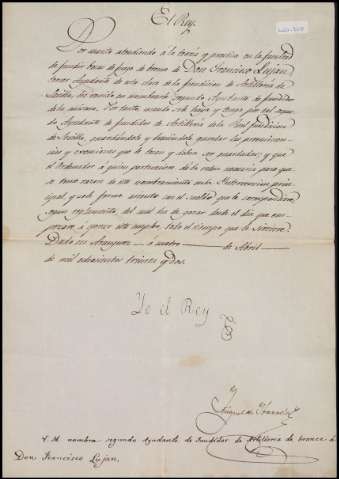 El Rey.
Por quanto atendiendo a la teoria y practica en la facultad
de fundir bocas de fuego de bronce de Don Francisco Lujan
tercer Ayudante de esta clase de la fundicion de Artilleria de
Sevilla, he venido en nombrarle segundo Ayudante de fundidor
de la misma. Por tanto mando
Ayudante de fundidor de Artilleria de la Real fundicion
de Sevilla, guardandole y haciendole guardar las preeminen-
cias y exenciones que le tocan y deben ser guardadas; y que
el Ordenador a quien perteneciere dé la orden necesaria para que
se tome razon de este nombramiento en la Intervencion prin-
cipal, y se le forme asiento con el sueldo que le correspondiere
segun reglamento, del qual ha de gozar desde el dia que em-
pezare a exercer este empleo, todo el tiempo que le sirviere.
Dado en Aranjuez a cuatro de Abril
de mil ochocientos treinta y dos.
Yo el Rey
V. M. nombra segundo Ayudante de fundidor de Artilleria de bronce a
Don Francisco Lujan.